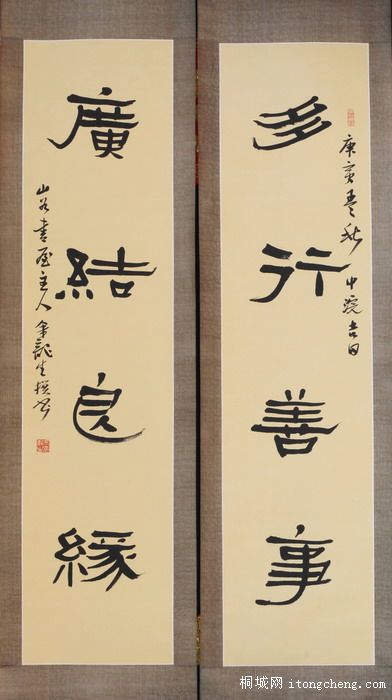 多行善事
庚寅孟秋中浣吉日
廣結良緣
山谷書屋主人余龍生撰書
桐城网 itongcheng.com